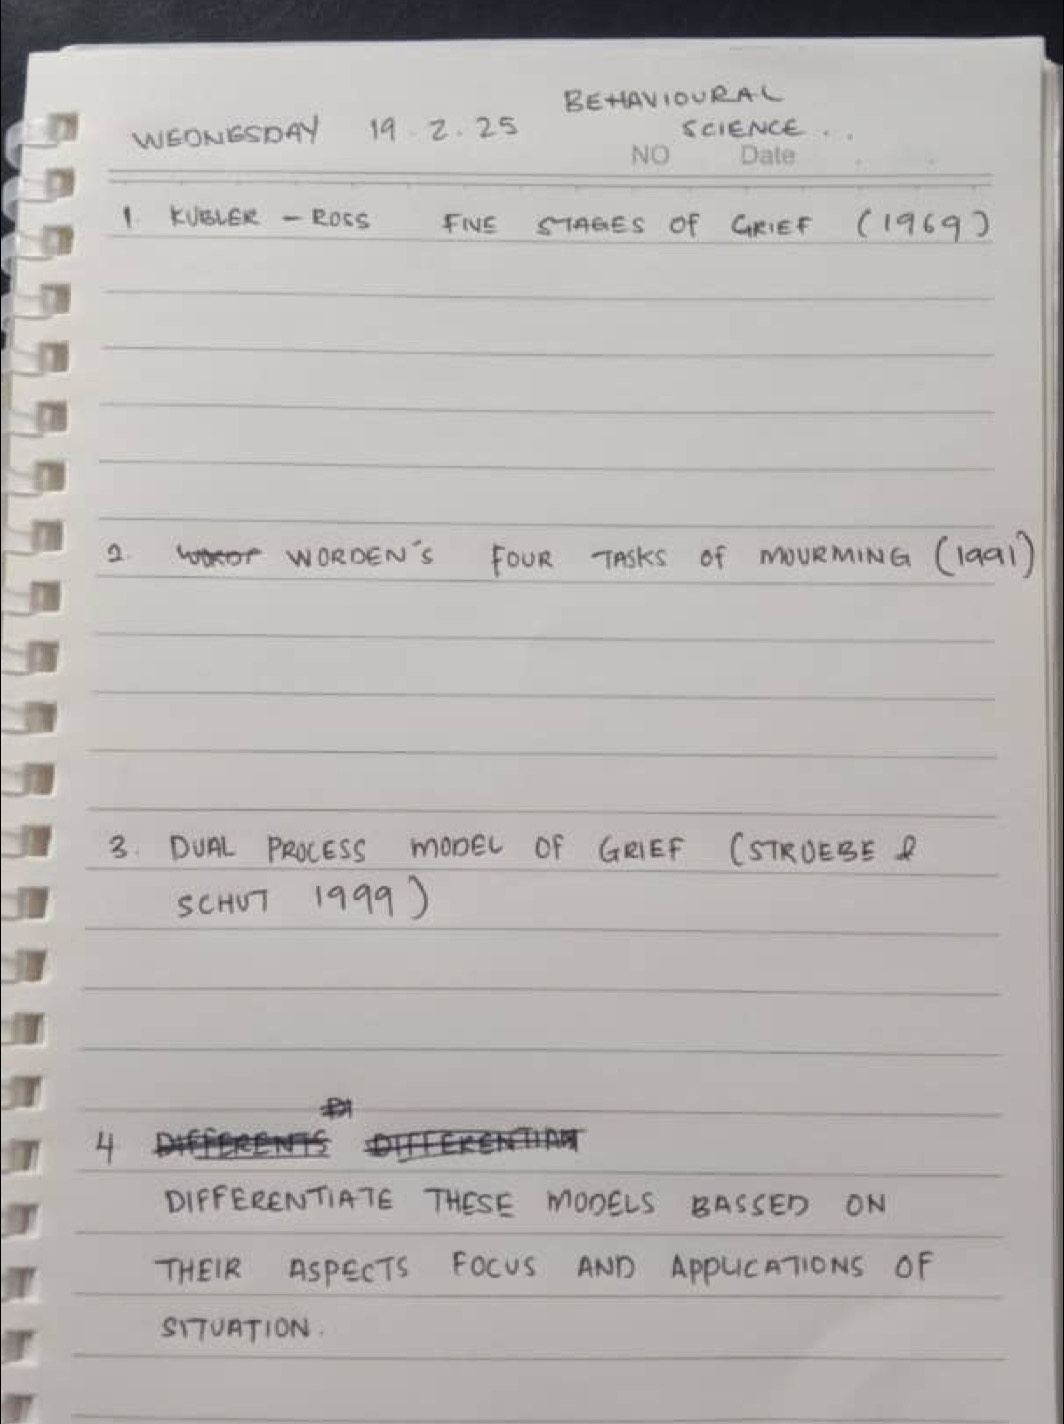 BEHAVIOURAL
WEDNESDAY 19.2.25 SCIENCE...
NO Date
1. KUBLER - ROSS FIVE STAGES OF GRIEF (1969)
2. WORDEN'S FOUR TASKS OF MOURMING (1991)
3. DUAL PROCESS MODEL OF GRIEF (STROEBE &
SCHUT 1999)
4 DIFFERENTS DIFFERENTIAT
DIFFERENTIATE THESE MODELS BASSED ON
THEIR ASPECTS FOCUS AND APPLICATIONS OF
SITUATION.